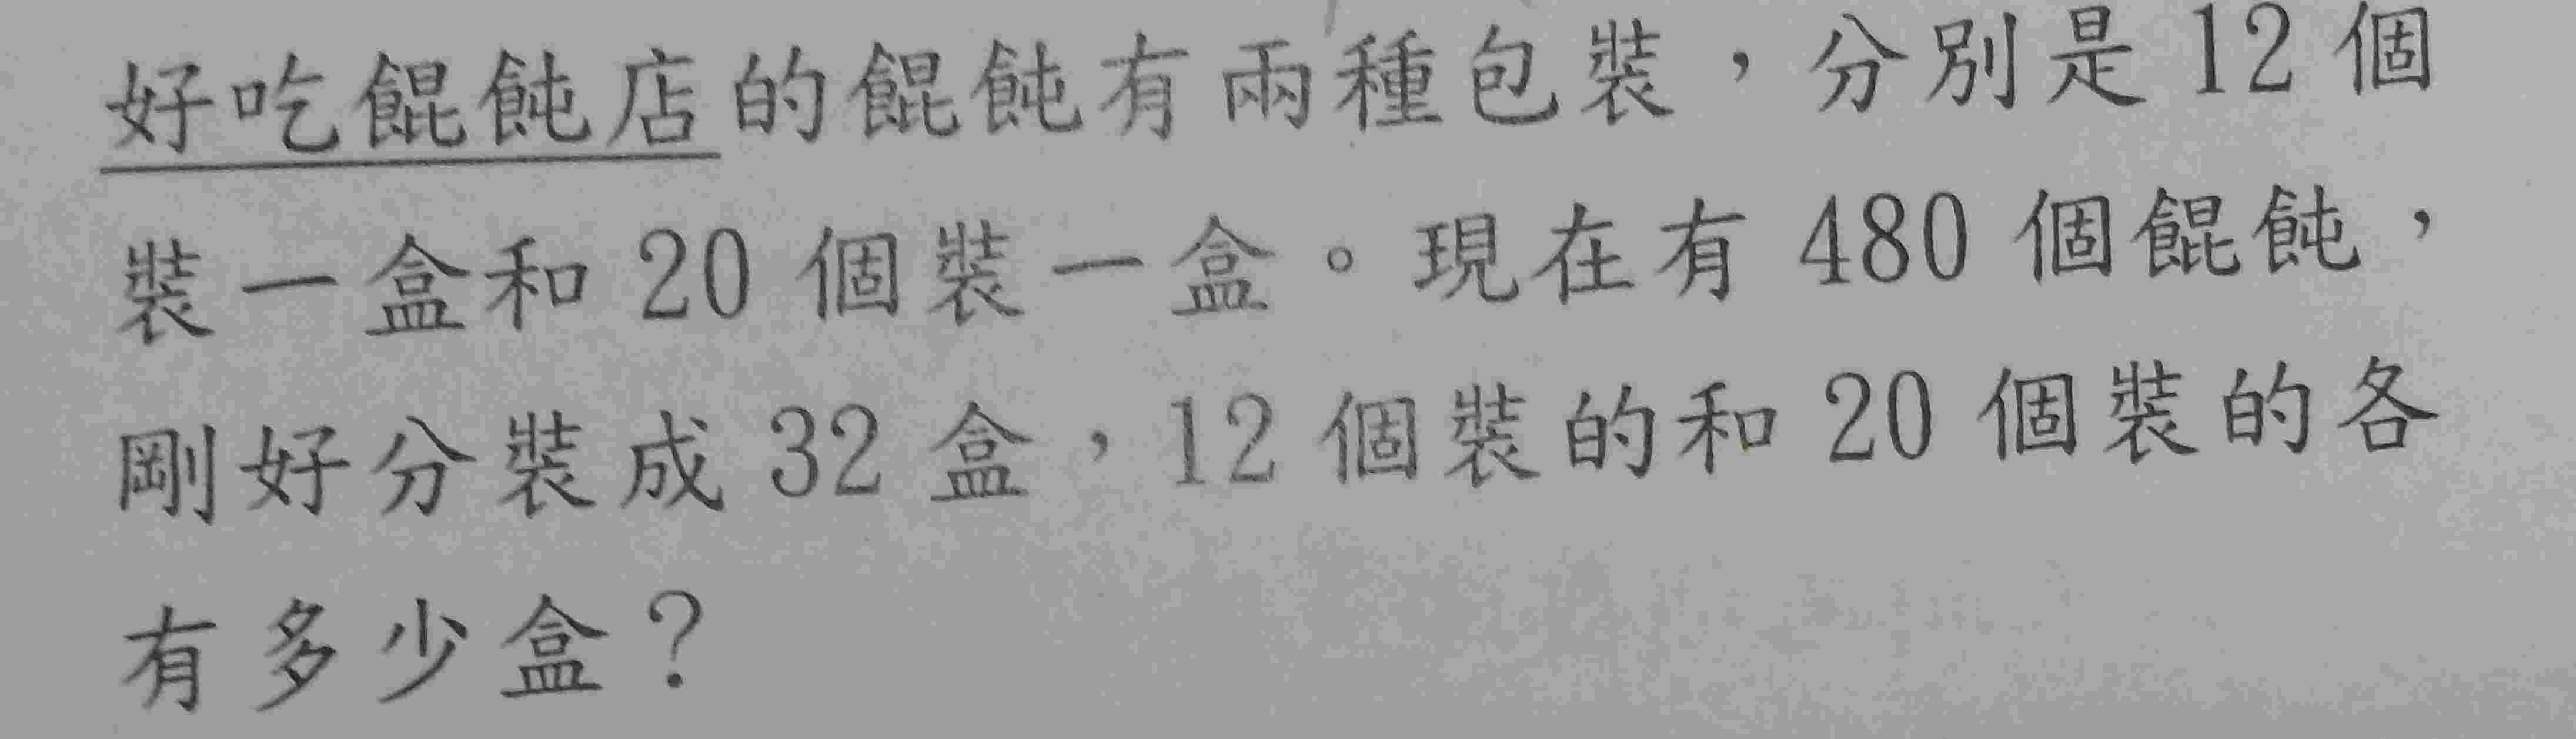 好吃餛飩店的餛飩有兩種包裝，分別是12個
裝一盒和20個裝一盒。現在有480個餛飩，
剛好分裝成32盒，12個裝的和20個裝的各
有多少盒？